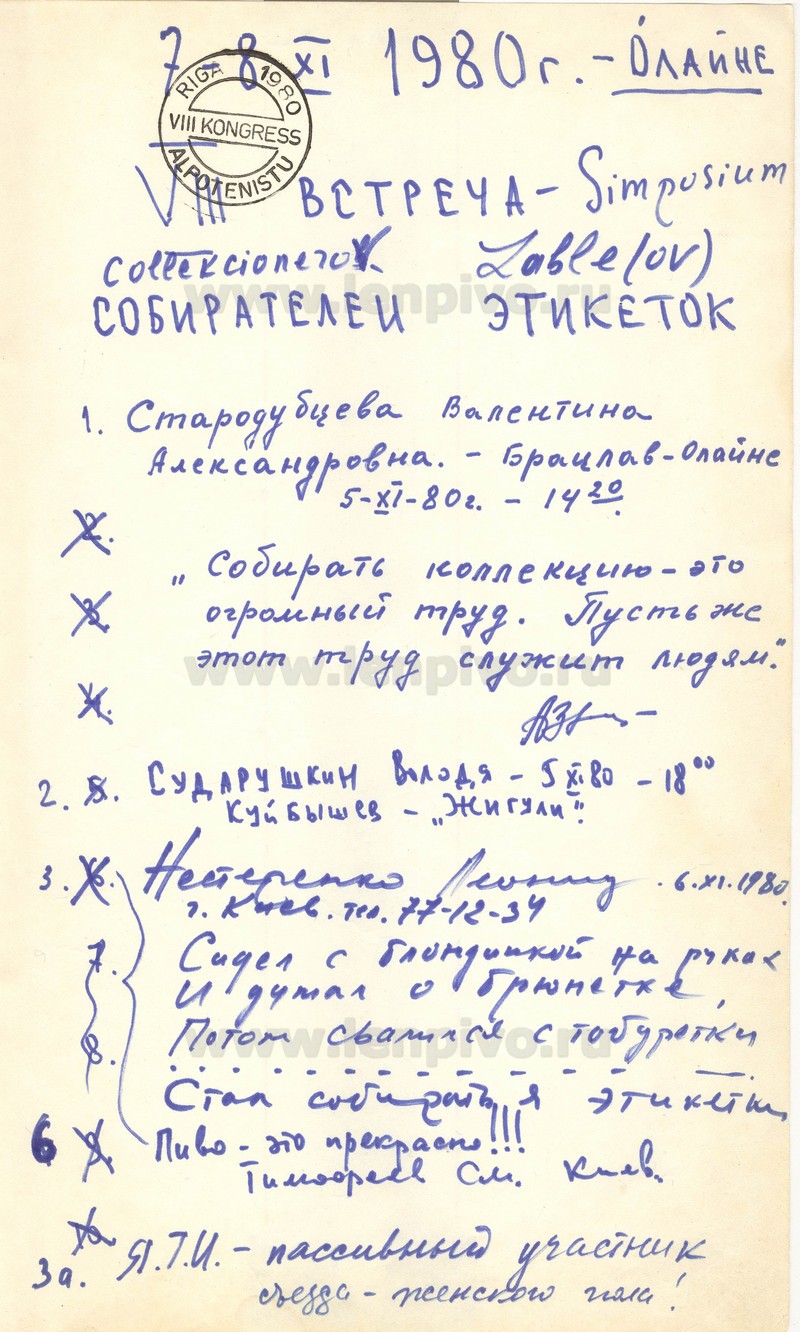 7-8 XI 1980г. - ОЛАЙНЕ
RIGA 1980
VIII KONGRESS
ALPOTENISTU
VIII ВСТРЕЧА - Simposium
collekcionerov Lable(ov)
www.lenpivo.ru
СОБИРАТЕЛЕЙ ЭТИКЕТОК
1. Стародубцева Валентина
Александровна. - Брацлав-Олайне
5-XI-80г. - 14 20.
2.
„Собирать коллекцию - это
3
огромный труд. Пусть же
этот труд служит людям."
www.lenpivo.ru
4.
2. 5. СУДАРУШКИН Володя - 5 XI 80 - 18 00
КУЙБЫШЕВ - „ЖИГУЛИ".
3. 6. Нестеренко Леонид. 6.XI.1980.
г. Киев. тел. 77-12-34
7. Сидел с блондинкой на руках
И думал о брюнетке,
8. Потом свалился с табуретки
www.lenpivo.ru
Стал собирать я этикетки
6 9. Пиво - это прекрасно!!!
Тимофеев См. Киев.
10
3а. Я.Т.И. - пассивный участник
съезда - женского пола!